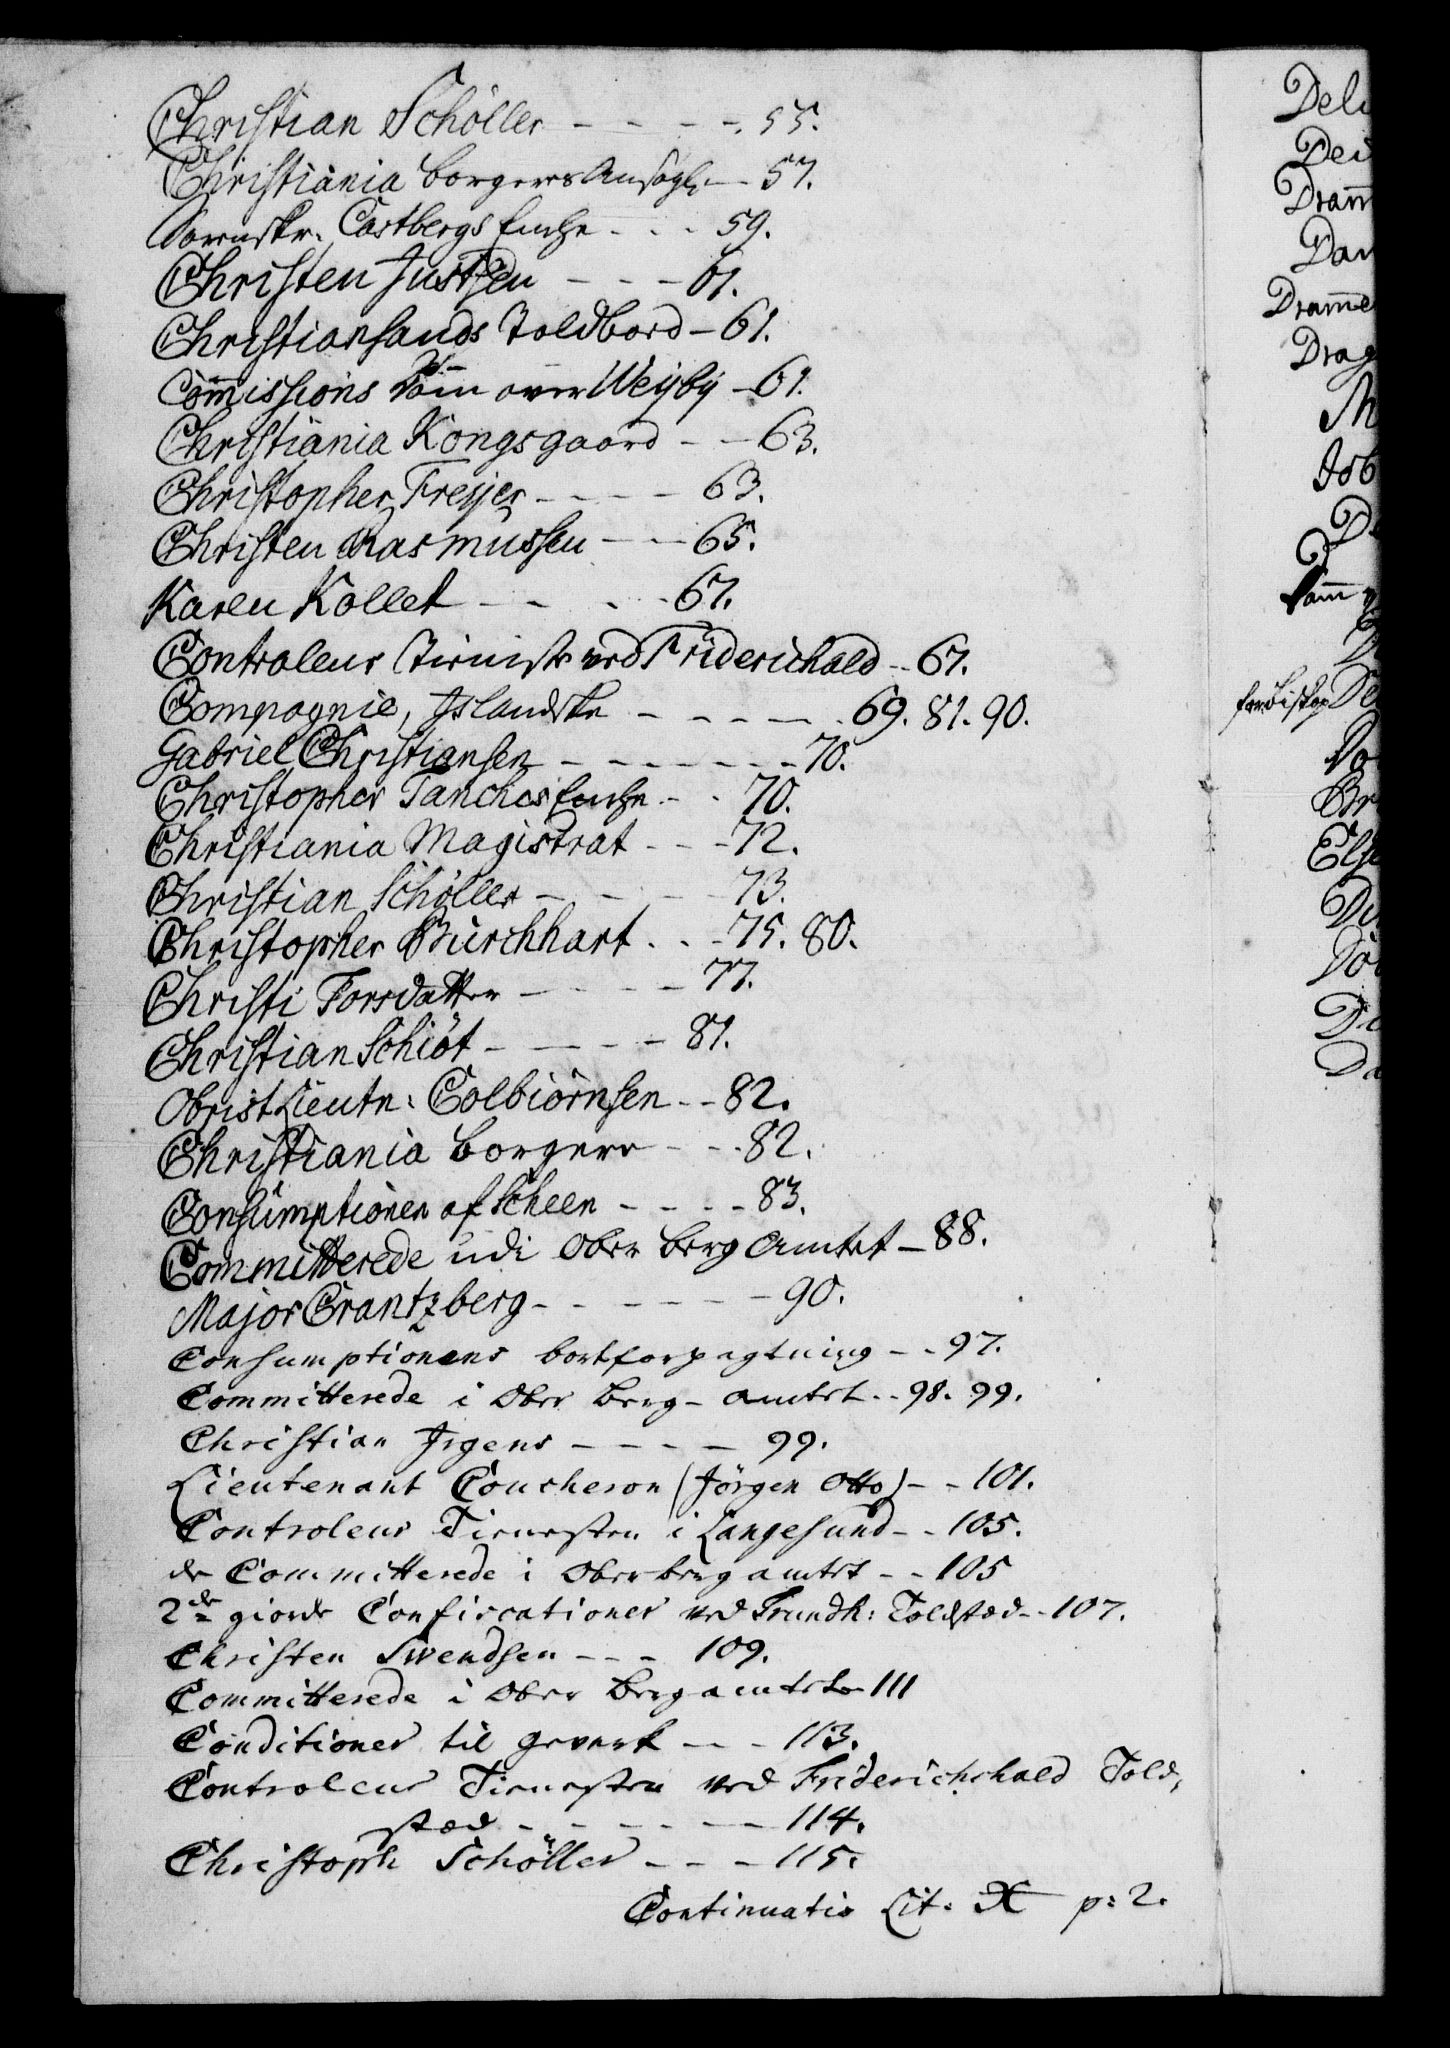 Christian Schöller - - - - -. 55.
Christiania borgeres Ansögh: - 57.
Sorenskr. Castbergs Enche - - - 59.
Christen Justsen - - - 61.
Christiansands Toldbord - 61.
Com̅issions Dom̅ over Weyby - 61.
Christiania Kongsgaard - - 63.
Christopher Freyer - - - - 63.
Christen Rasmussen - - - 65.
Karen Kollet - - - - 67.
Controleur Tieniste ved Friderichald - - 67.
Compagnie, Jslandske - - - - - . 69. 81. 90.
Gabriel Christiansen - - - - - - - 70.
Christopher Tanches Enche - - 70.
Christiania Magistrat - - - 72.
Christian Schöller - - - - 73.
Christopher Burchhart . . - 75. 80.
Christi Forsdatter - - - - - 77.
Christian Schiöt - - - - - 81.
Obrist Lieutn: Colbiörnsen - - 82.
Christiania borgere - - - 82.
Consumptionen af Scheen - - - - 83.
Committerede udi Ober berg Amtet - 88.
Major Crantzberg - - - - - - 90.
Consumptionens bortforpagtning - - 97.
Committerede i Ober berg- amtet - - 98. 99.
Christian Jrgens - - - - 99.
Lieutenant Coucheron (Jörgen Otto) - - 101.
Controleur Tienesten i Langesund - - 105.
de Committerede i Oberberg amtet - - 105
2de giorde Confiscationer ved Trundh: Toldsted - - 107.
Christen Svendsen - - - 109.
Committerede i Ober berg amtet - 111
Conditioner til Geverk - - - 113.
Controleur Tienesten ved Friderichshald Told,
sted - - - - - - - 114.
Christoph Schöller - - - 115.
Continuatio Lit. X p: 2.
Dram̅
Dram̅e
Drag
for Biskop
Dom̅
Else